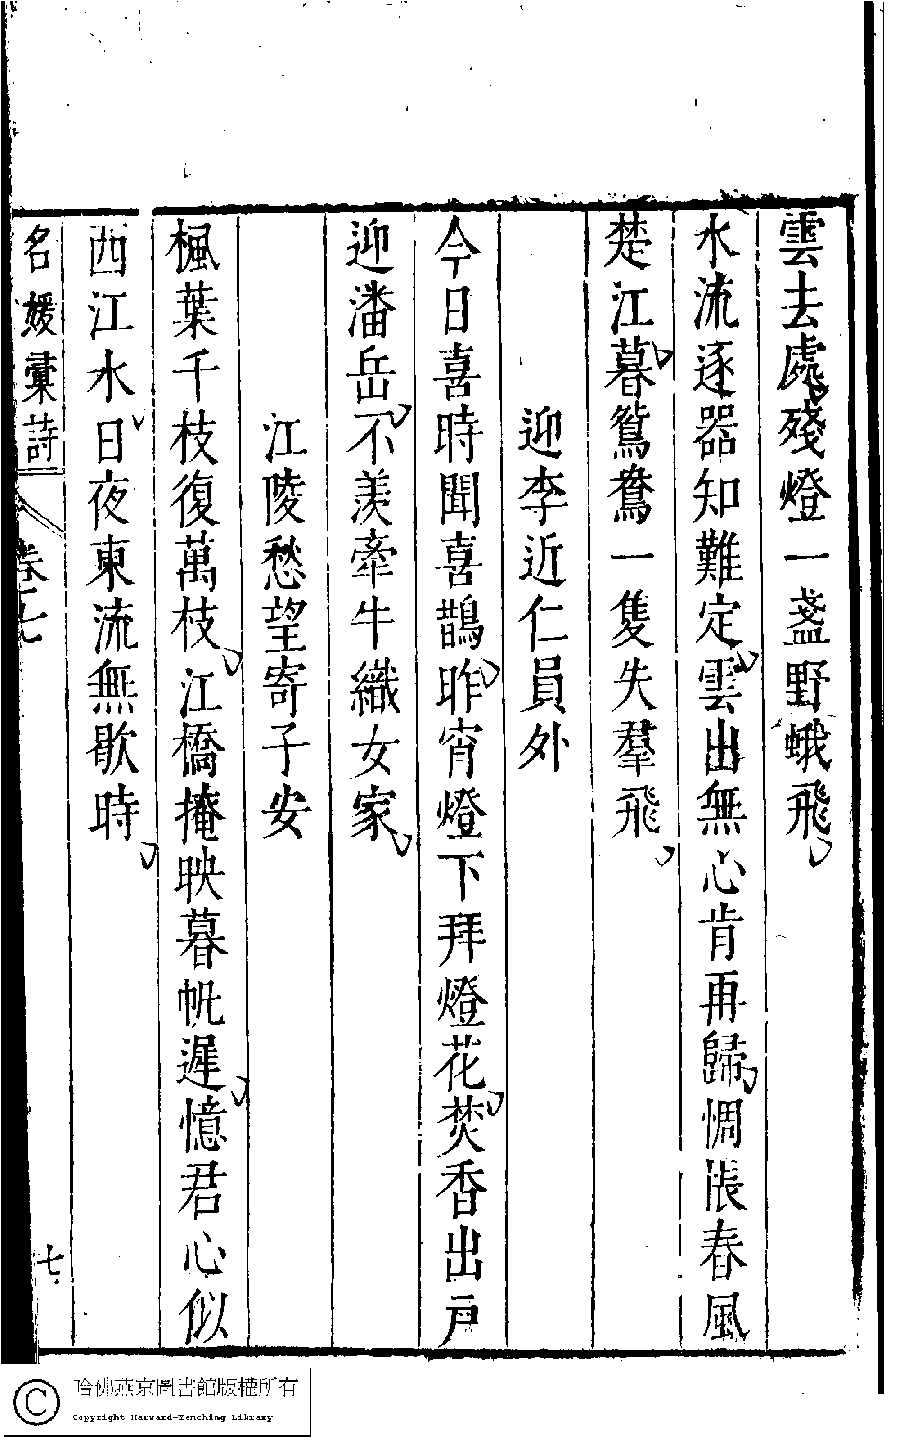 雲去處殘燈一盞野蛾飛
水流逐器知難定雲出無心肯再歸惆悵春風
楚江暮鴛鴦一隻失羣飛
迎李近仁員外
今日喜時聞喜鵲昨宵燈下拜燈花焚香出戸
迎潘岳不羡牽牛織女家
江陵愁望寄子安
楓葉千枝復萬枝江橋掩映暮帆遲憶君心似
西江水日夜東流無歇時
名媛彙詩
卷七
七
哈佛燕京圖書館版權所有
Copyright Harvard-Yenching Library